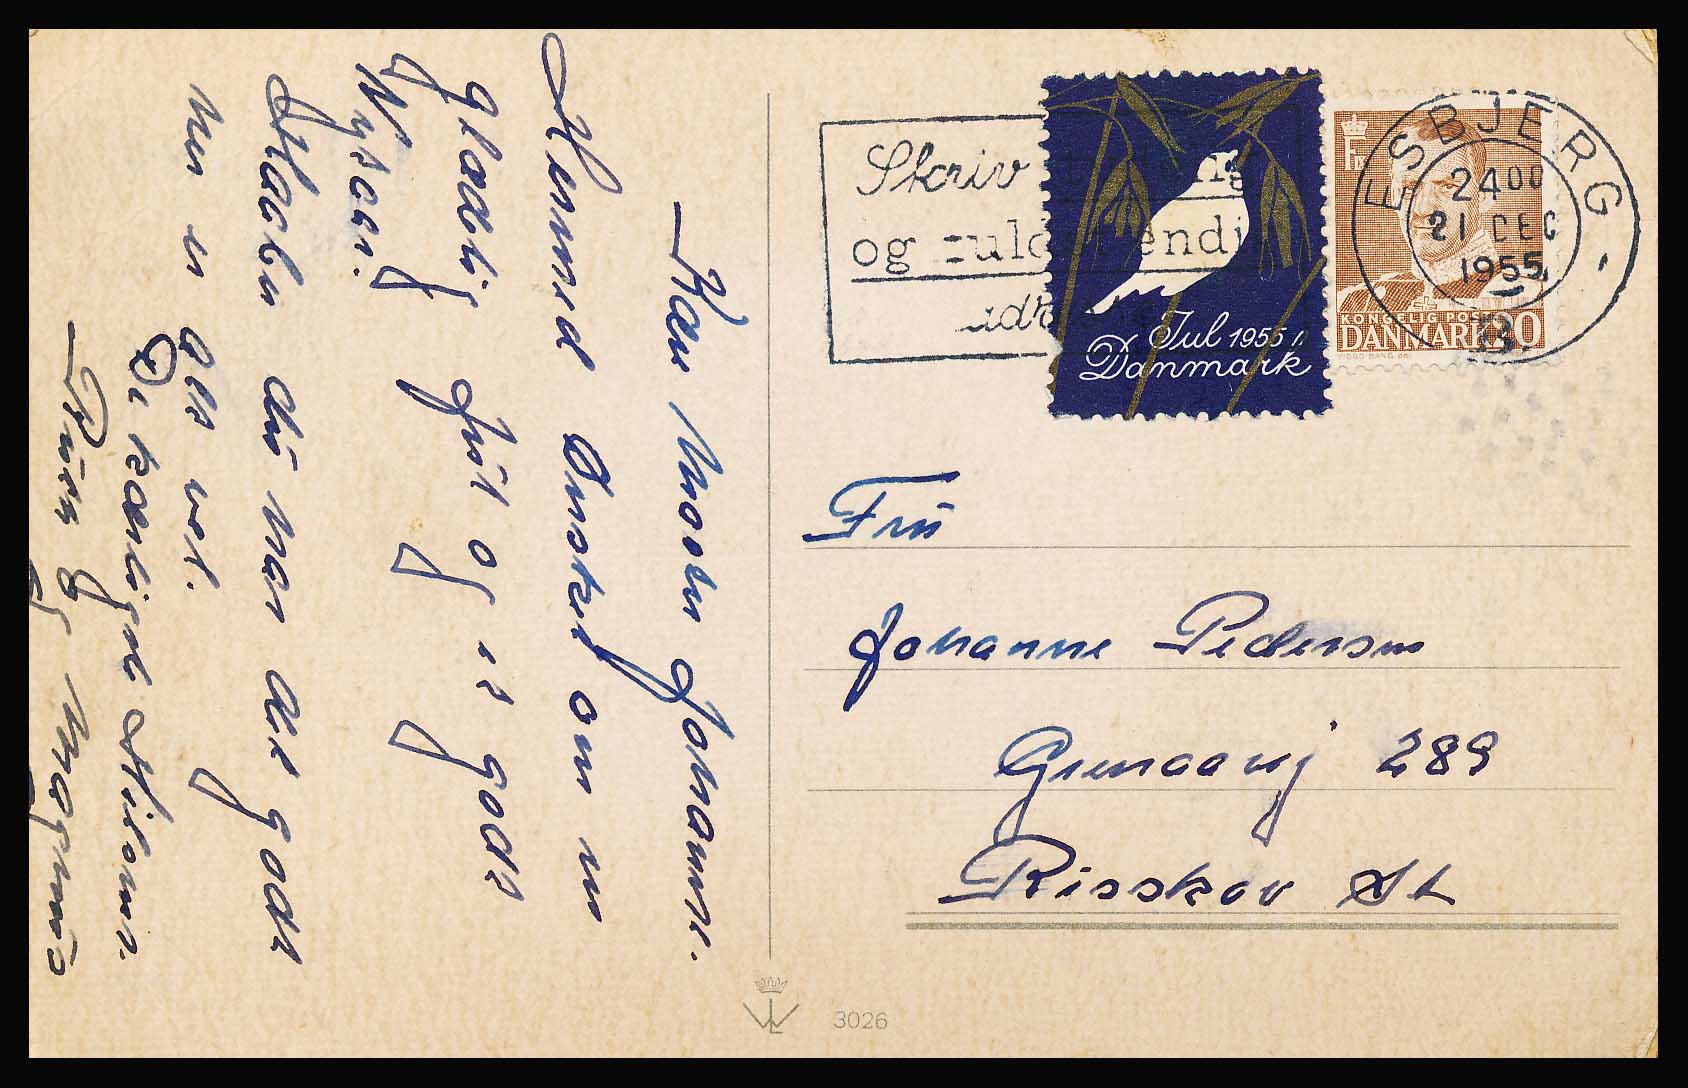 Kære Moster Johanne.
Hermed Ønsket om en
glædelig Jul og et godt
Nytaar.
Haaber du har det godt
her er alt vel.
De kærligste Hilsner
og Magnus
Skriv
og fuldstændig
Jul 1955
Danmark
ESBJERG
2400
21 DEC
1955
KONGELIG POST
DANMARK 20
Fru
Johanne Pedersen
Grenaavej 289
Risskov St
3026